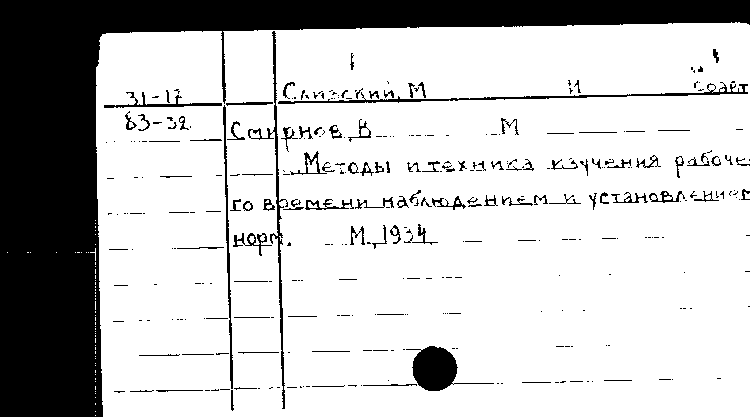 31-17 Слизский, М И соавт
83-32 Смирнов, В М
Методы и техника изучения рабоче
го времени наблюдением и установлением
норм. М., 1934